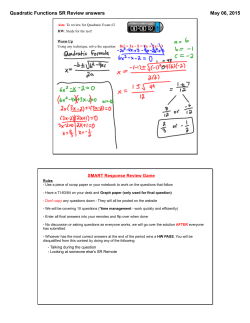 Quadratic Functions SR Review answers
May 06, 2015
Aim: To review for Quadratic Exam #2
HW: Study for the test!
Warm Up
Using any technique, solve the equation
Quadratic Formula
x = -b ± √b²-4ac
2a
6x²-x-2=0
a = 6
b = -1
c = -2
x = -(-1) ± √(-1)²-4(6)(-2)
2(6)
x = 1 ± √49
12
SMART Response Review Game
Rules
- Use a piece of scrap paper or your notebook to work on the questions that follow
- Have a TI-83/84 on your desk and Graph paper (only used for final question)
- Don't copy any questions down - They will all be posted on the website
- We will be covering 10 questions (*time management - work quickly and efficiently)
- Enter all final answers into your remotes and flip over when done
- No discussion or asking questions as everyone works; we will go over the solution AFTER everyone
has submitted
- Whoever has the most correct answers at the end of the period wins a HW PASS. You will be
disqualified from this contest by doing any of the following:
- Talking during the question
- Looking at someone else's SR Remote